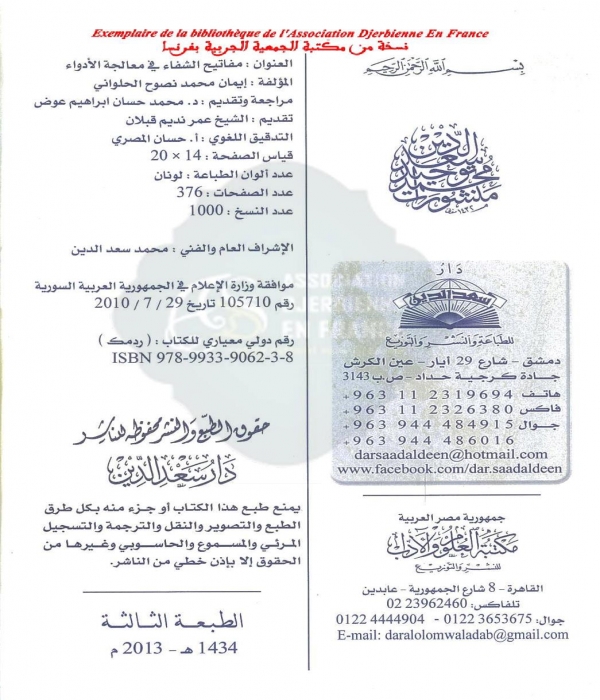 Exemplaire de la bibliothèque de l'Association Djerbienne En France
نسخة من مكتبة الجمعية الجربية بفرنسا
بسم الله الرحمن الرحيم
منشورات
محمد توحيد
سعد الدين
دار
سعد الدين
للطباعة والنشر والتوزيع
دمشق - شارع 29 أيار - عين الكرش
جادة كرجية حداد - ص.ب 3143
هاتف +963 11 2319694
فاكس +963 11 2326380
جوال +963 944 484915
+963 944 486016
darsaadaldeen@hotmail.com
www.facebook.com/dar.saadaldeen
جمهورية مصر العربية
مكتبة العلوم والآداب
للنشر والتوزيع
القاهرة - 8 شارع الجمهورية - عابدين
تلفاكس: 23962460 02
جوال: 0122 3653675 - 0122 4444904
E-mail: daralolomwaladab@gmail.com
العنوان : مفاتيح الشفاء في معالجة الأدواء
المؤلفة : إيمان محمد نصوح الحلواني
مراجعة وتقديم : د. محمد حسان ابراهيم عوض
تقديم : الشيخ عمر نديم قبلان
التدقيق اللغوي : أ. حسان المصري
قياس الصفحة : 14 × 20
عدد ألوان الطباعة : لونان
عدد الصفحات : 376
عدد النسخ : 1000
الإشراف العام والفني : محمد سعد الدين
موافقة وزارة الإعلام في الجمهورية العربية السورية
رقم 105710 تاريخ 29 / 7 / 2010
رقم دولي معياري للكتاب : ( ردمك )
ISBN 978-9933-9062-3-8
حقوق الطبع والنشر محفوظة للناشر
دار سعد الدين
يمنع طبع هذا الكتاب أو جزء منه بكل طرق
الطبع والتصوير والنقل والترجمة والتسجيل
المرئي والمسموع والحاسوبي وغيرها من
الحقوق إلا بإذن خطي من الناشر.
الطبعة الثالثة
1434 هـ - 2013 م
ASSOCIATION
DJERBIENNE
EN FRANCE